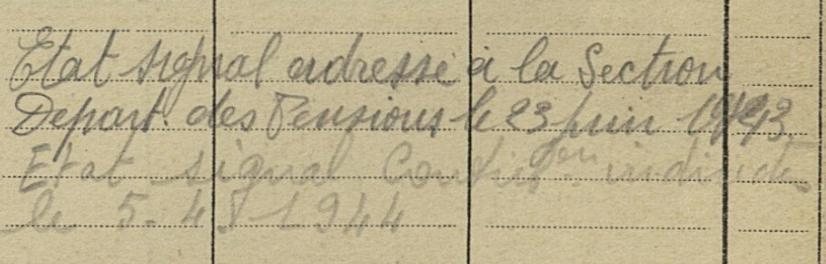 Etat signal adressé à la Section
Départ. des Pensions le 23 juin 1943.
Etat signal Contrib.en indirectes
le 5-4-1944